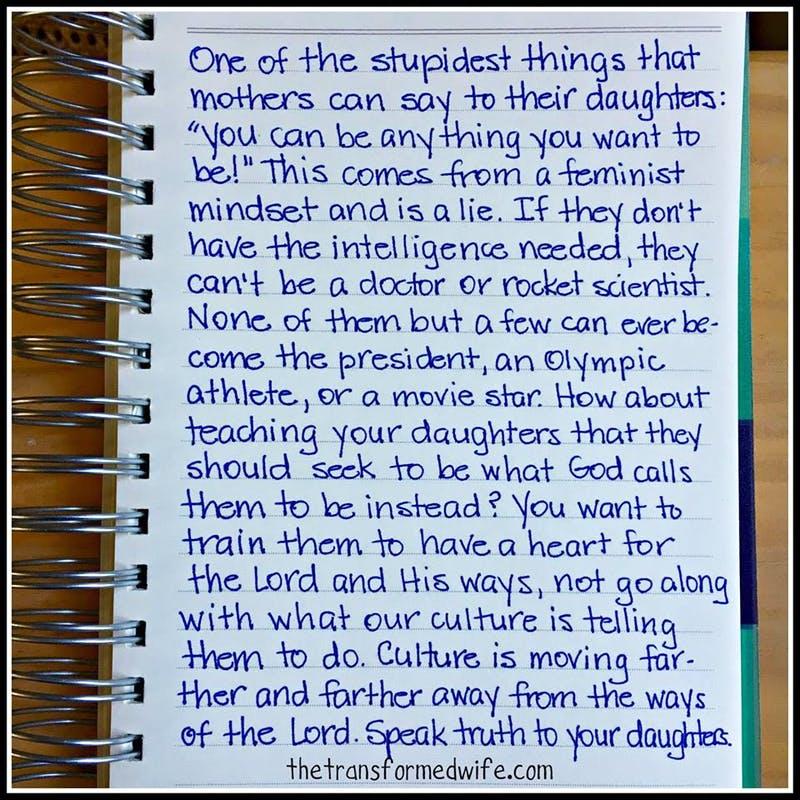 One of the stupidest things that
mothers can say to their daughters:
"You can be anything you want to
be!" This comes from a feminist
mindset and is a lie. If they don't
have the intelligence needed, they
can't be a doctor or rocket scientist.
None of them but a few can ever be-
come the president, an Olympic
athlete, or a movie star. How about
teaching your daughters that they
should seek to be what God calls
them to be instead? You want to
train them to have a heart for
the Lord and His ways, not go along
with what our culture is telling
them to do. Culture is moving far-
ther and farther away from the ways
of the Lord. Speak truth to your daughters.
thetransformedwife.com